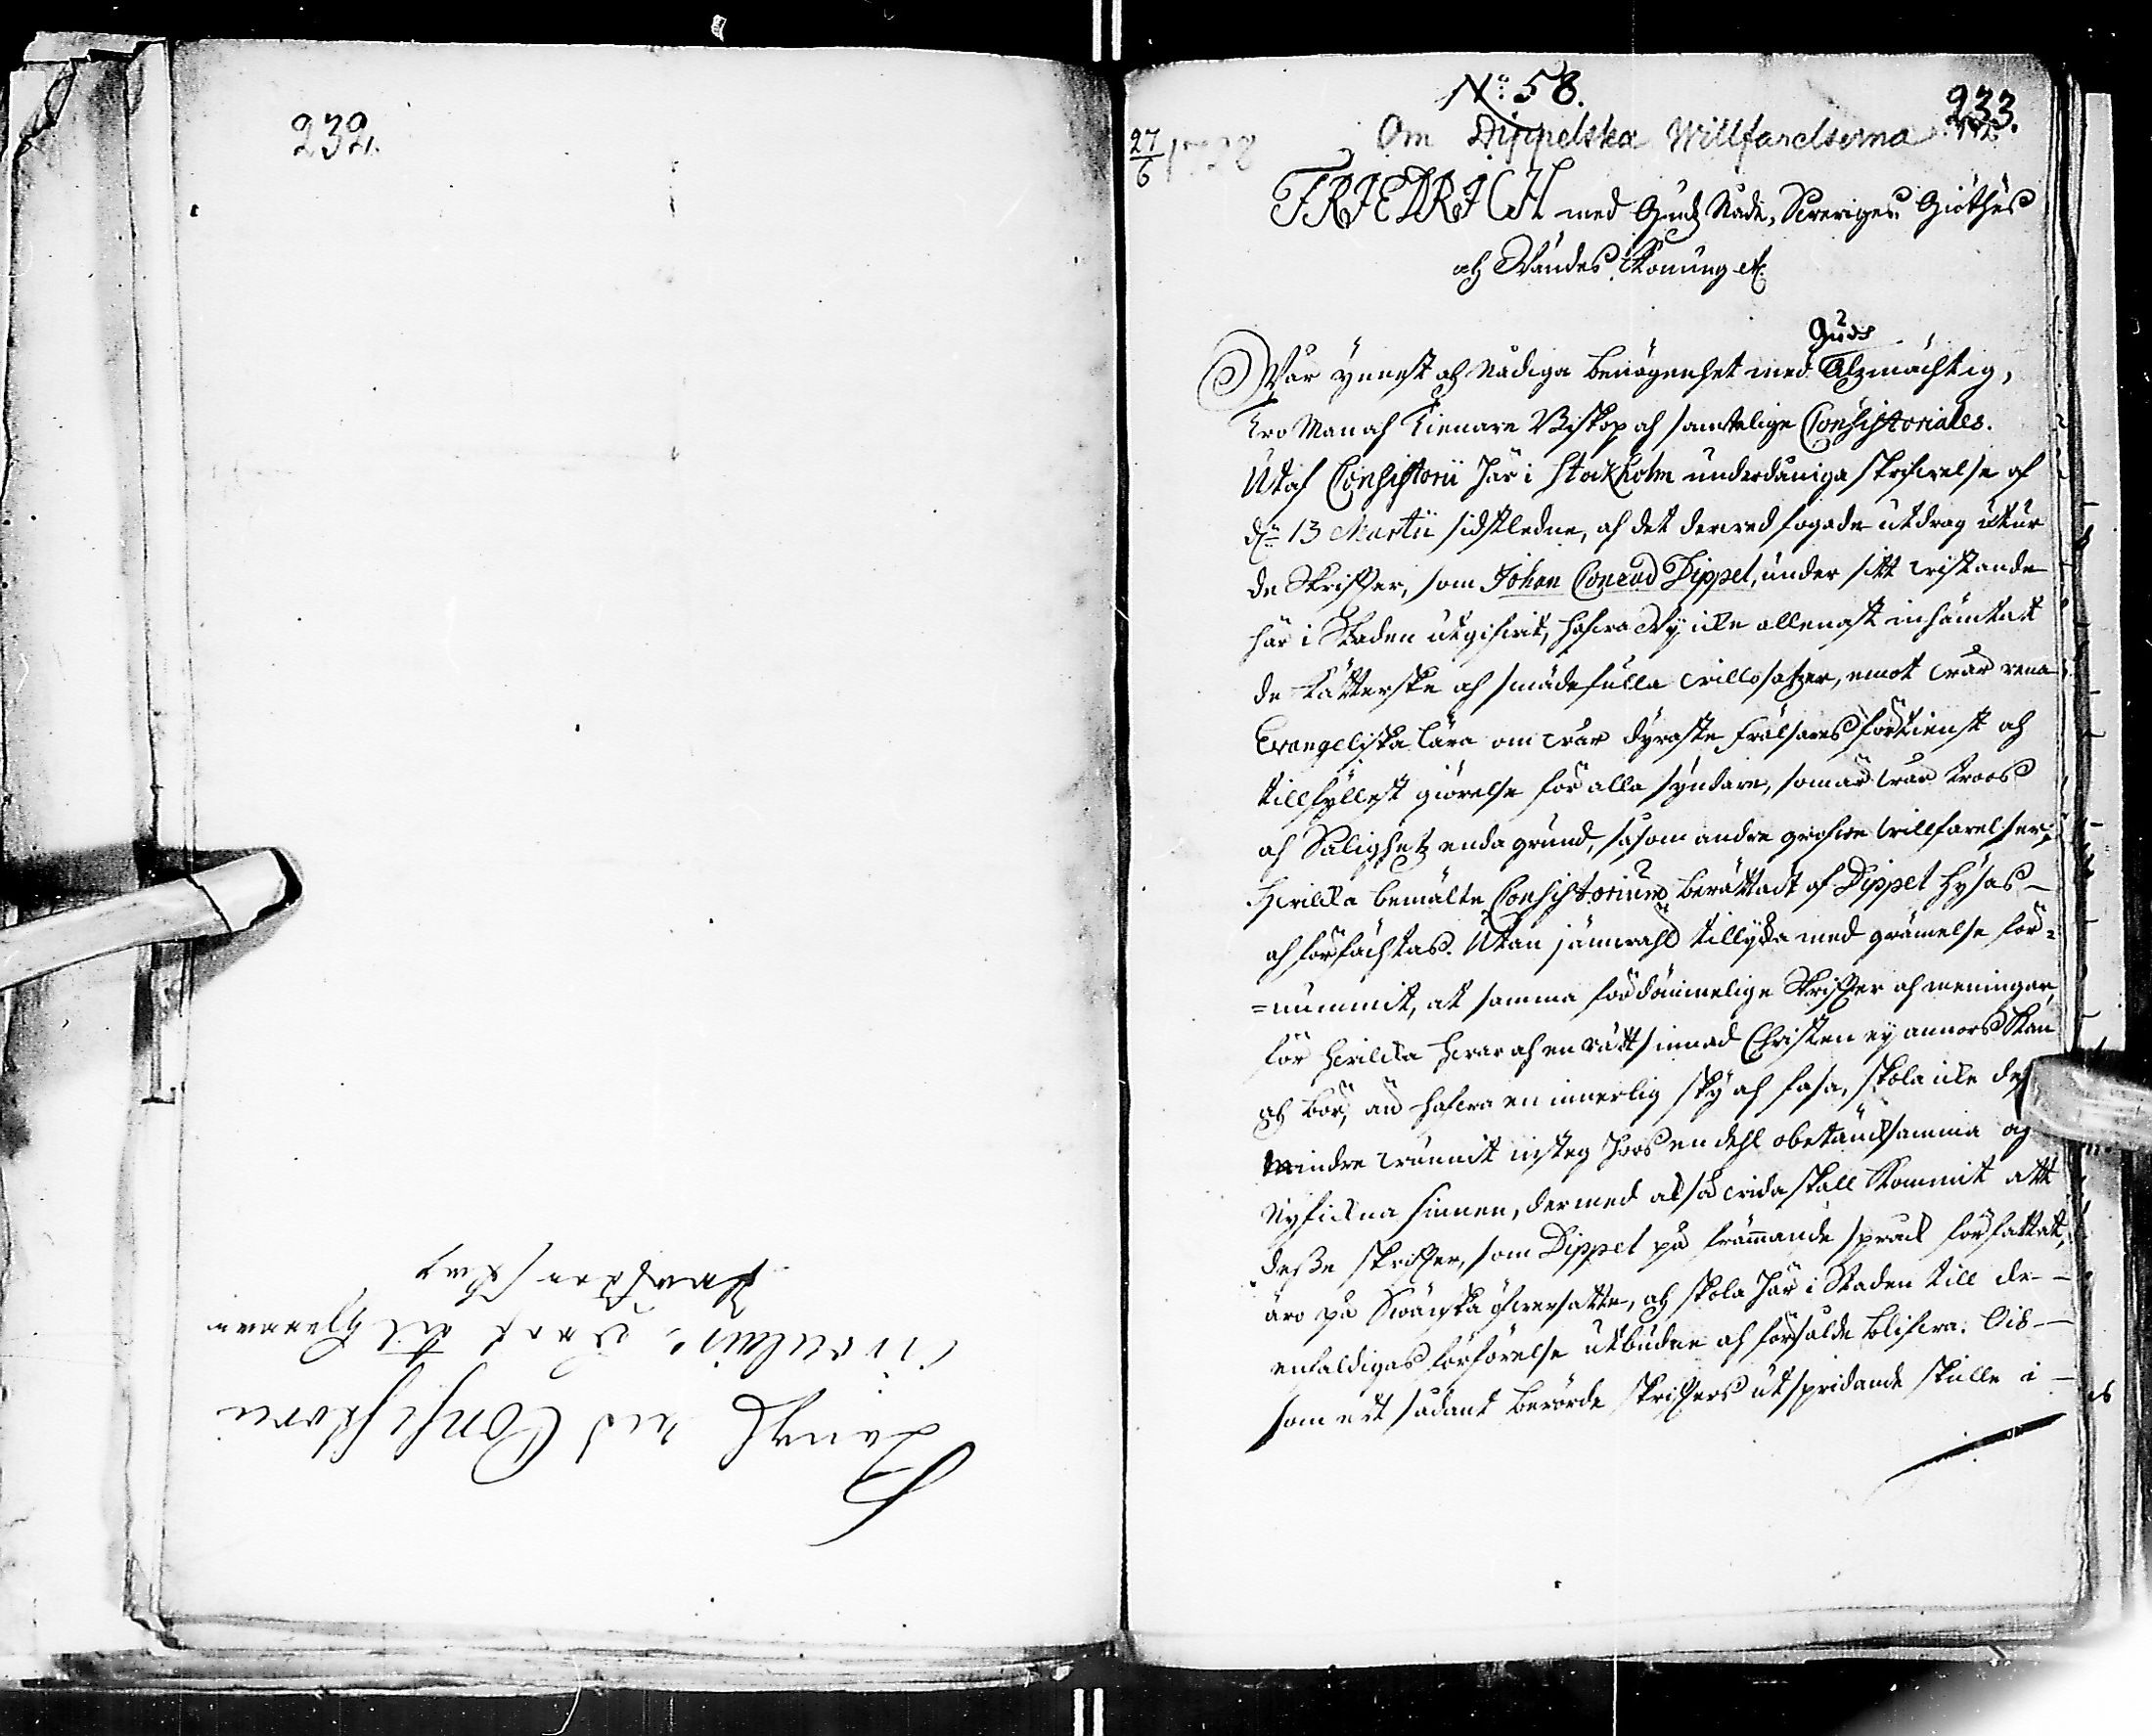 232.
ad Consistorii
Circulair
No: 58.
233.
27/6 1728
Om Dippelska Willfarelserna
FRIEDRICH med Gudz Nåde, Sveriges Giöthes
och Wändes Konung etc.
Guds
Wår ynnest och Nådiga benägenhet med Alzmächtig,
Tro Man och Tienare Biskop och samtelige Consistoriales.
Utaf Consistorii här i Stockholm underdåniga skrifwelse af
dn 13 Martii sidstledne, och det derwed fogade utdrag utur
de Skriffter, som Johan Conrad Dippel, under sitt wistande
här i Staden utgifwit, hafwa Wij icke allenast inhämtat
de Kätterske och smädefulla willosatzer, emot wår rena
Evangeliska lära om wår dyraste Frälsares förtienst och
tillfyllest giörelse för alla syndare, som är wår troos
och Salighetz enda grund, såsom andre grofwe willfarelser,
hwilcka bemälte Consistorium berättadt af Dippel hysas
och förfächtas. Utan jämwähl tillijka med grämelse för=
=nummit, at samma fördömmelige Skriffter och meningar,
för hwilcka hwar och en rättsinnad Christen ej annors kan
och bör, än hafwa en innerlig sky och fasa, skola icke deß
mindre wunnit insteg hoos en dehl obetäncksamma och
Nyfickna sinnen, dermed at så wida skall kommit att
deße skriffter, som Dippel på främmande språck författat,
äro på Swänska öfwersatte, och skola här i Staden till de
enfaldigas förförelse utbudne och försålde blifwa. Lik
som ett sådant berörde skriffters utspridande skulle i